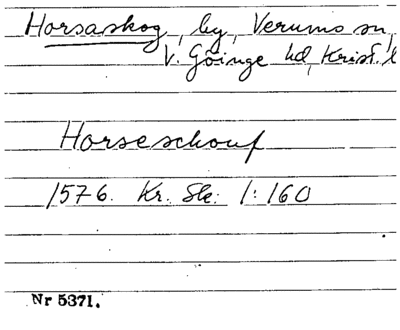 Horsaskog, by, Verums sn,
V. Göinge hd, Krist. l
Horseschouf
1576. Kr. Sk. 1:160
Nr 5371.